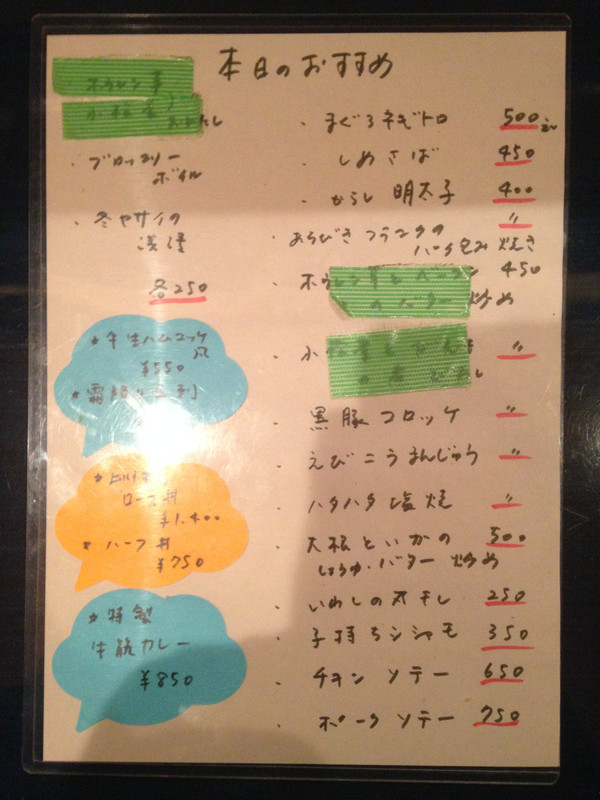 本日のおすすめ
ブロッコリー
ボイル
冬ヤサイの
浅漬
各250
¥550
ロース丼
¥1.400
* ハーフ丼
¥750
* 特製
牛筋カレー
¥850
・ まぐろネギトロ 500
・ しめさば 450
・ からし 明太子 400
・ あらびき フランクの 〃
パイ包み 焼き
・ ホウレン草と 450
のバター炒め
・ 小松菜と 〃
・ 黒豚コロッケ 〃
・ えびこうまんじゅう 〃
・ ハタハタ塩焼 〃
・ 大根といかの 500
しょうゆ・バター 炒め
・ いわしの丸干し 250
・ 子持ちシシャモ 350
・ チキン ソテー 650
・ ポーク ソテー 750